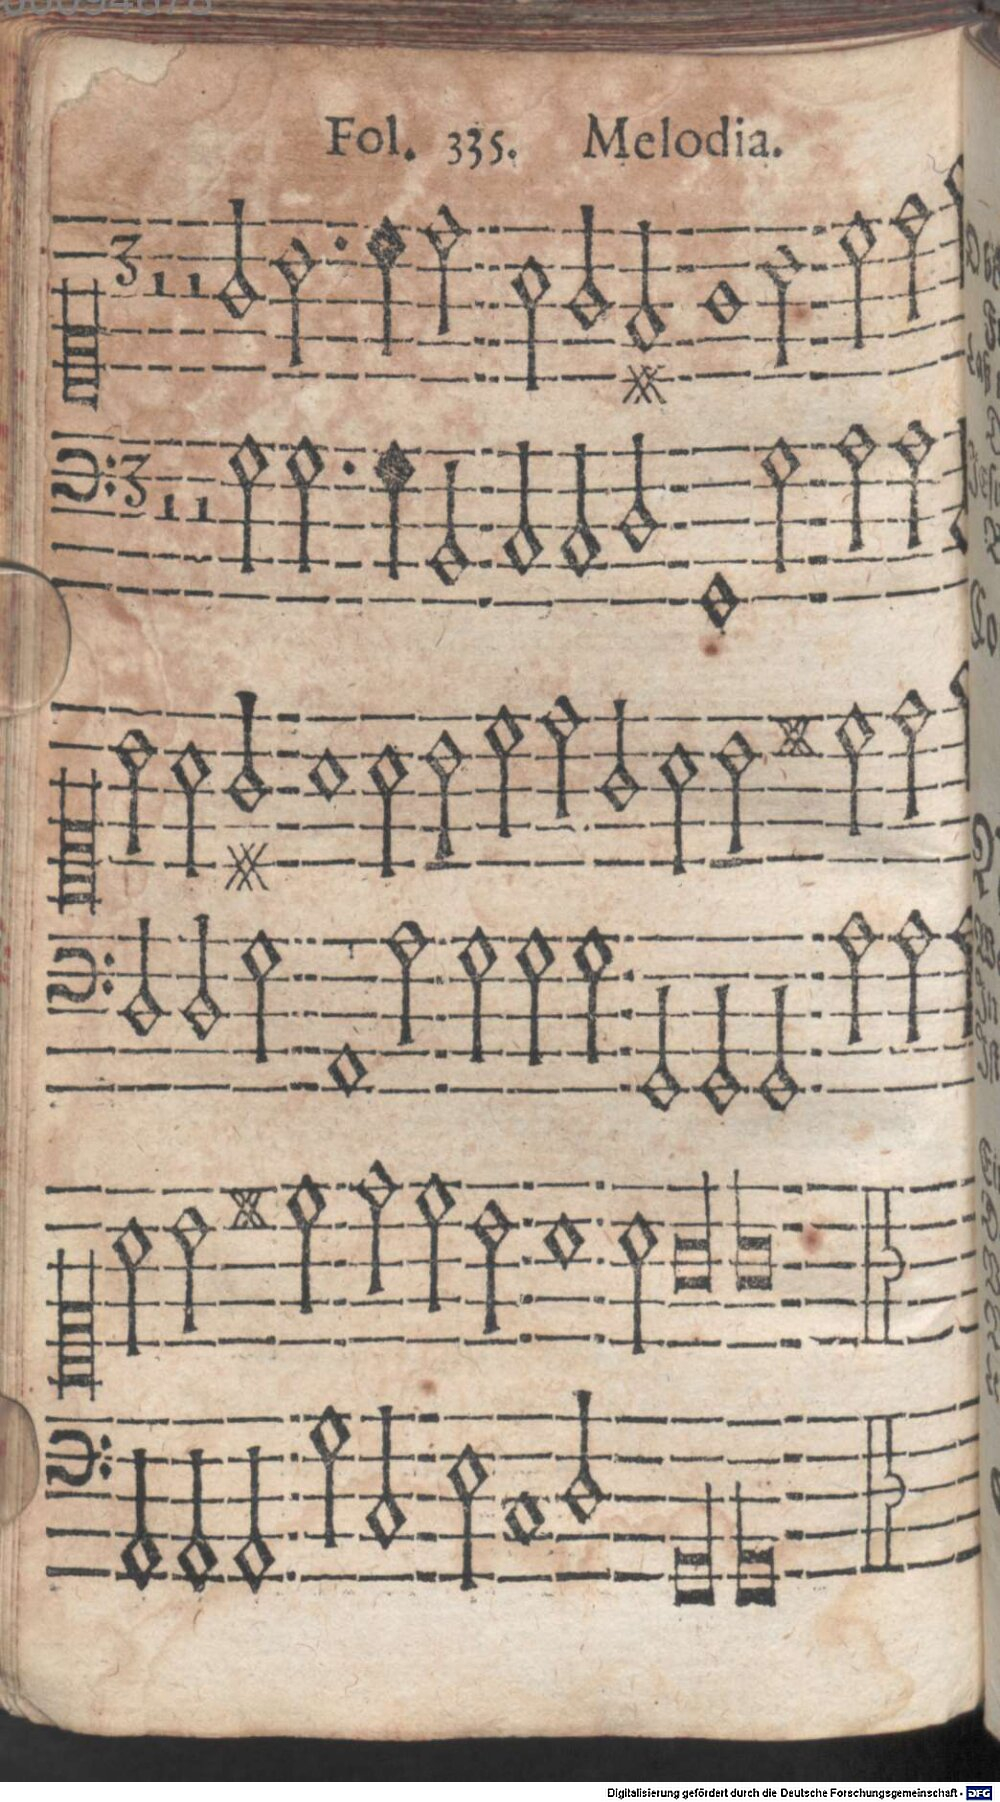 Fol. 335. Melodia.
3
3
Digitalisierung gefördert durch die Deutsche Forschungsgemeinschaft - DFG